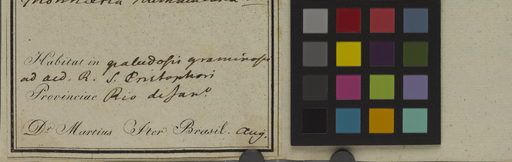 Habitat in paludosis graminosis
ad aed. R. S. Cristophori
Provinciae Rio de Jan.º
Dr. Martius Iter Brasil. Aug.